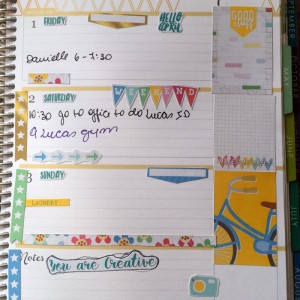 1 FRIDAY:
HELLO APRIL
GOOD
Danielle 6-7:30
2 SATURDAY:
WEEKEND
10:30 go to office to do Lucas SD
9 Lucas gym
3 SUNDAY:
LAUNDRY
Notes
You are Creative
SEPTEMBER
MAY
JUNE
JULY